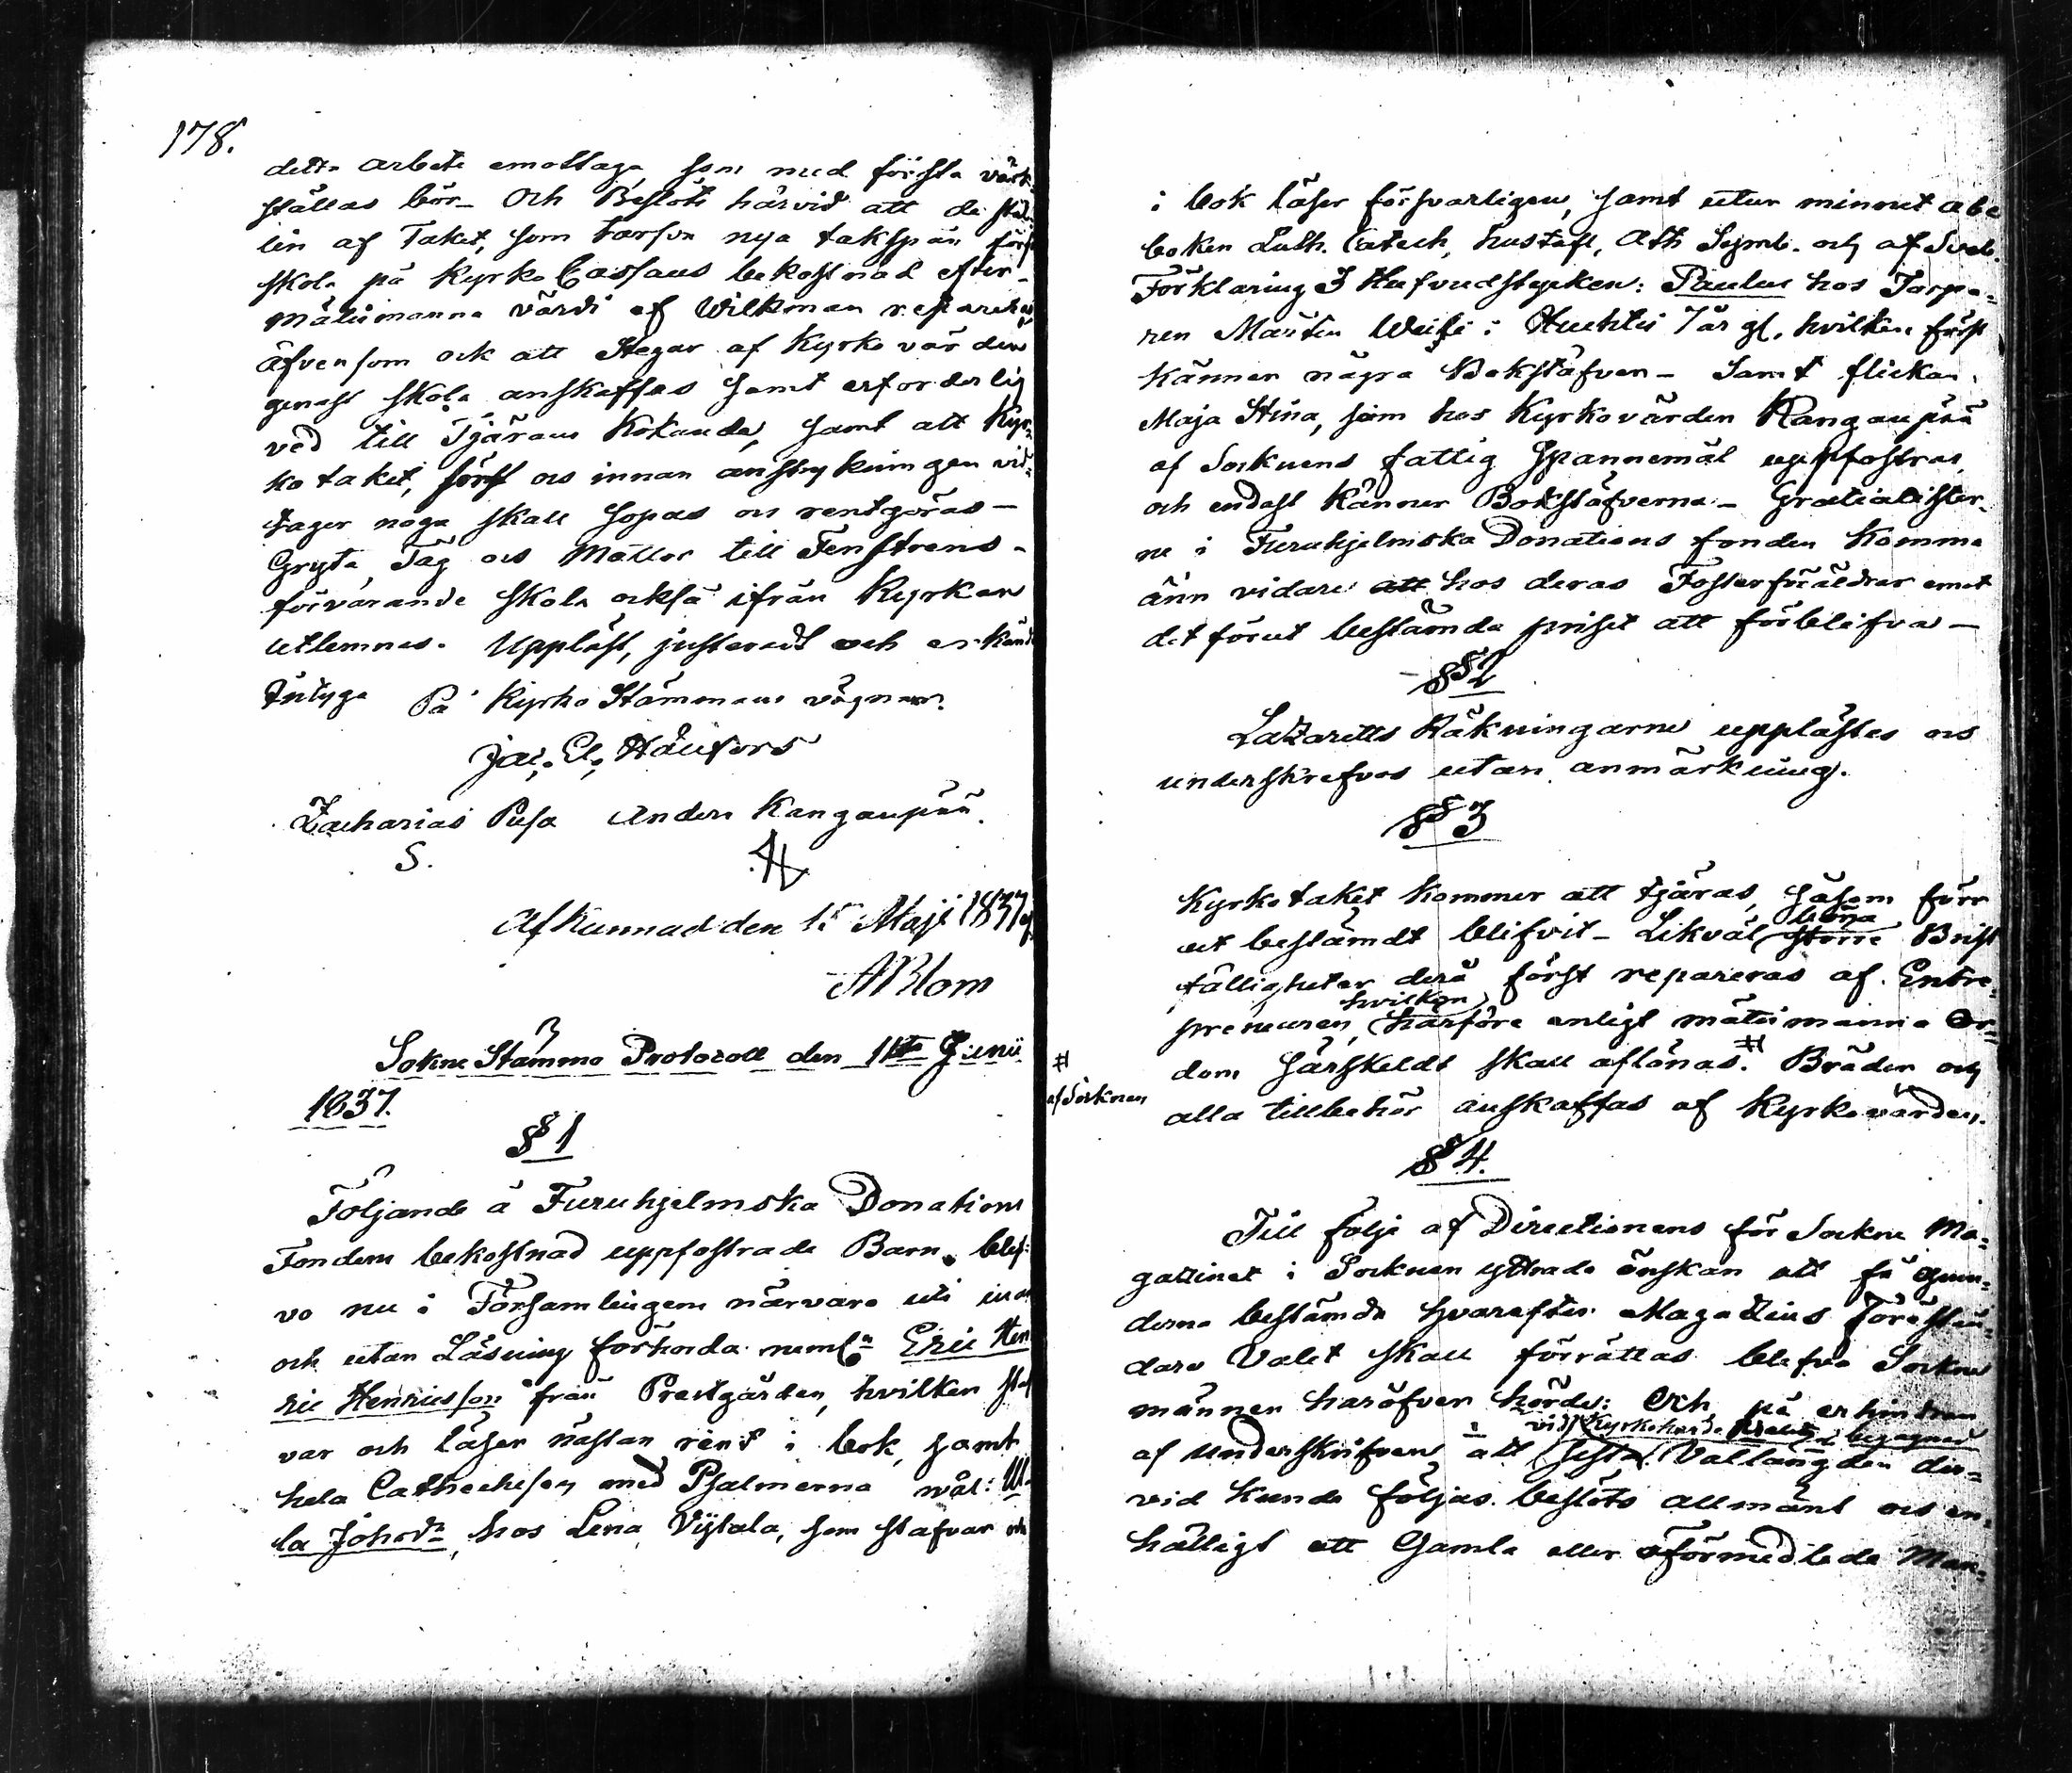 178.
detta arbete emottaga, som med första värk-
ställas bör_ Och Beslöts härvid att de stäl-
len af Taket, som tarfva nya takspån först
skola på Kyrko Cassans bekostnad efter_
mätismanna värdi af Wilkman repareras
äfvensom ock att Stegar af Kyrkovärden
genast skola anskaffas samt erforderlig
ved till Tjärans kokande, samt att Kyr-
ko taket, först och innan anstrykningen vid-
tager noga skall sopas och rentgöras _
Gryta, Tåg och Mattor till Fenstrens
förvarande skola också ifrån Kyrkan
utlemnas. Uppläst, justeradt och erkändt
intyga På Kyrko Stämmans vägnar.
Jac. El. Hänfors
Zacharias Pusa Anders Kangaupää
S.
Afkunnad den 15 Maji 1837 af
A Blom
Sokne Stämmo Protocoll den 11te Junii
1837.
§ 1
Följande å Furuhjelmska Donations
Fondens bekostnad uppfostrade Barn, blef-
vo nu i Församlingens närvaro uti innan
och utan Läsning förhörda neml:n Eric Hen
ric Henricsson från Prestgården, hvilken staf
var och läser nästan rent i bok, samt
hela Cathechesen med Psalmerna wäl: Ul-
la Johsdr, hos Lena Vijtala, som stafvar och
i bok läser försvarligen, samt utur minnet abc
boken Luth. Catech, hustafl, Ath Symb. och af Sveb.
Förklaring 3 Hufvudstycken: Paulus hos Torpa-
ren Martin Weisi i Huchtis 7 år gl. hvilken först
känner några Bokstäfver _ Samt flickan
Maja Stina, som hos Kyrkovärden Kangaupää
af Socknens fattig Spannemål uppfostras
och endast känner Bokstäfverna _ Gratialister-
ne i Furuhjelmska Donations fonden komma
änn vidare att hos deras Fosterföräldrar emot
det förut bestämda priset att förblifva _
§ 2
Lazaretts Räkningarne upplästes och
underskrefvos utan anmärkning.
§ 3
Kyrkotaket kommer att tjäras, såsom förr
böra
ut bestämdt blifvit _ Likväl större Brist
fälligheter derå först repareras af Entre-
hvilken
preneuren, härföre enligt mätismanna Or-
dom särskildt skall aflönas. # Bräder och
# af Socknen
alla tillbehör anskaffas af Kyrkovärden.
§ 4.
Till följe af Directionens för Sockne Ma-
gazinet i Socknen yttrade önskan att få grun-
derna bestämda hvarefter Magazins Förestån-
dare Valet skall förrättas blefvo Sockne
männen häröfver hörde: Och på erhindran
vid Kyrkoherde begagnad
af Underskrifven att sista Vallängden der-
vid kunde följas beslöts allmänt och en-
hälligt att Gamla eller oförmedlade Man-